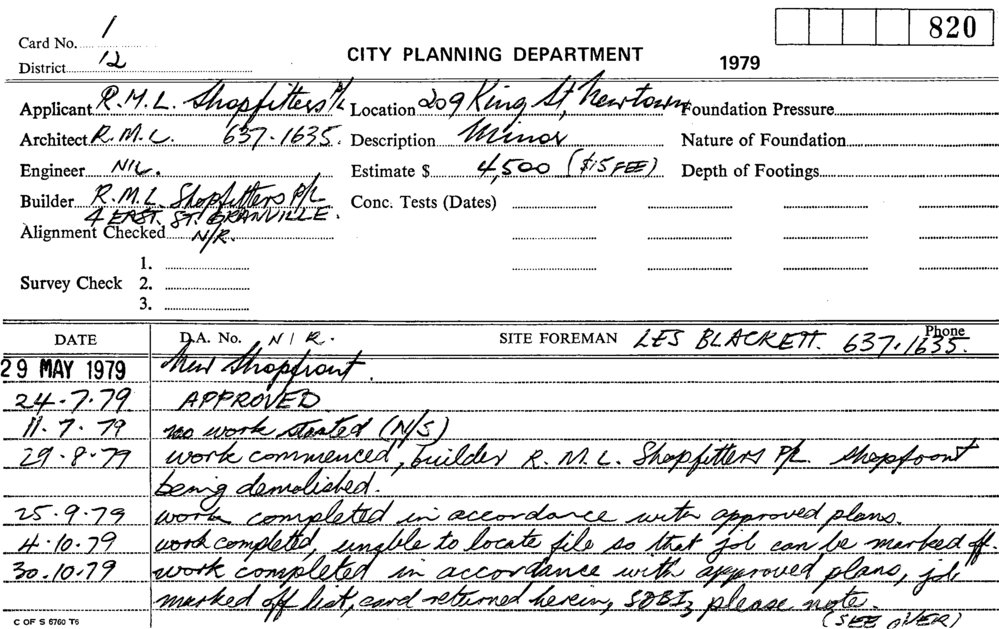 820
Card No. 1
CITY PLANNING DEPARTMENT 1979
District 12
Applicant R.M.L. Shopfitters P/L Location 209 King St, Newtown Foundation Pressure
Architect R.M.L. 637.1635. Description Minor Nature of Foundation
Engineer NIL. Estimate $ 4,500 ($15 FEE) Depth of Footings
Builder R.M.L. Shopfitters P/L Conc. Tests (Dates)
4 EAST. ST. GRANVILLE.
Alignment Checked N/R.
1.
Survey Check 2.
3.
DATE D.A. No. N/R. SITE FOREMAN LES BLACKETT. Phone 637.1635.
29 MAY 1979 New Shopfront.
24.7.79 APPROVED
11.7.79 no work started (N/S)
29.8.79 work commenced, builder R.M.L. Shopfitters P/L. shopfront
being demolished.
25.9.79 work completed in accordance with approved plans.
4.10.79 work completed, unable to locate file so that job can be marked off.
30.10.79 work completed in accordance with approved plans, job
marked off list, card returned herein, please note.
(SEE OVER)
C OF S 6760 T6